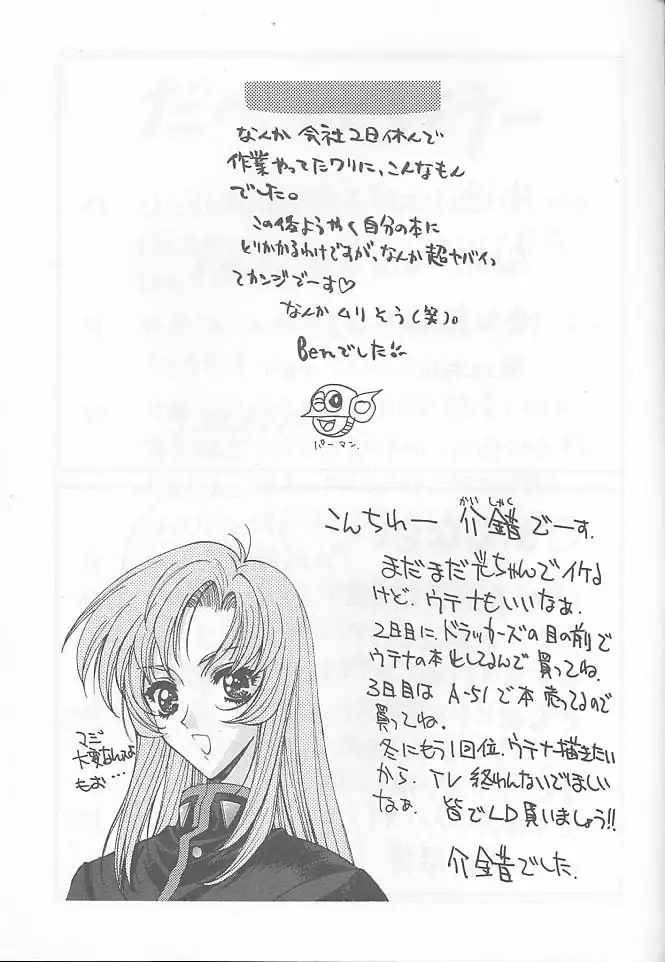 なんか 会社2日休んで
作業やってたワリに、こんなもん
でした。
この後ようやく自分の本に
とりかかるわけですが、なんか超ヤバイっ
てカンジでーす♡
なんかムリそう(笑)。
Benでした!!
パーマン.
かいしゃく
こんちわー 介錯でーす.
まだまだ光ちゃんでイケる
けど、ウテナもいいなぁ.
2日目に、ドラッカーズの目の前で
ウテナの本としてるんで買ってね.
3日目は A-51で本売ってるので
買ってね.
冬にもう1回位、ウテナ描きたい
から、TV終わんないでほしい
なぁ. 皆でLD買いましょう!!
介錯でした.
マジ
大変なんスよ
もお…